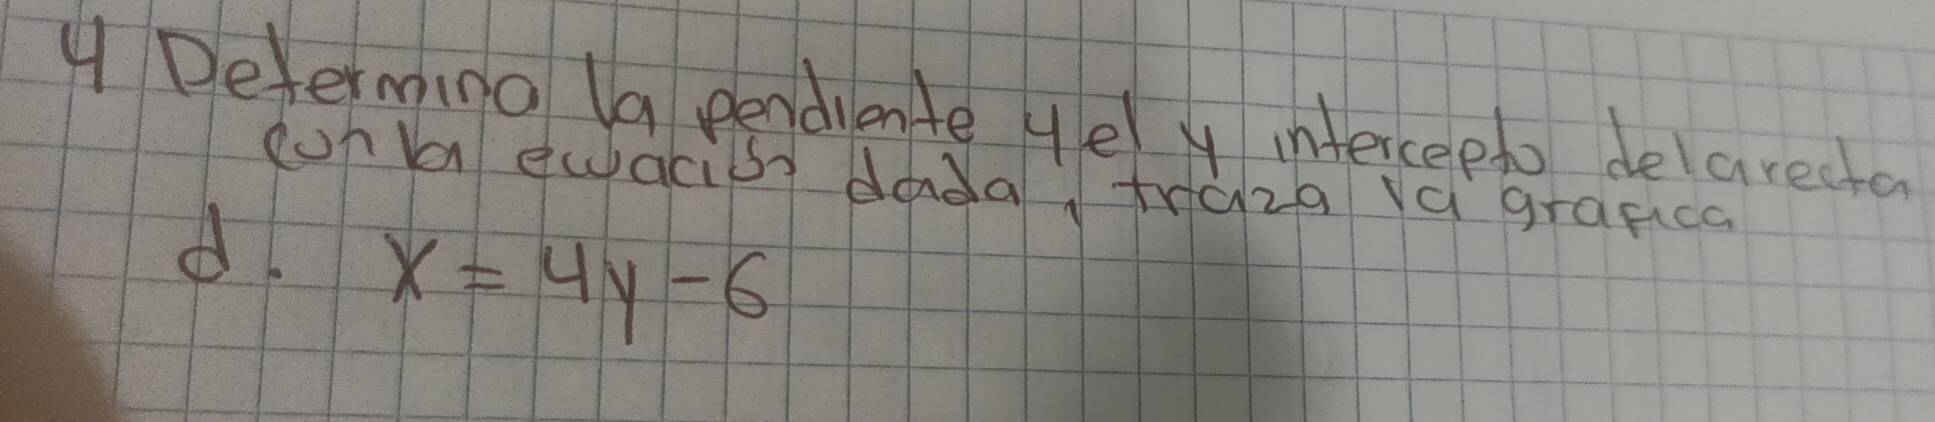 4 Determina la pendiente y el y intercepto de la recta
con la ecuación dada, traza la grafica
d. x = 4y - 6